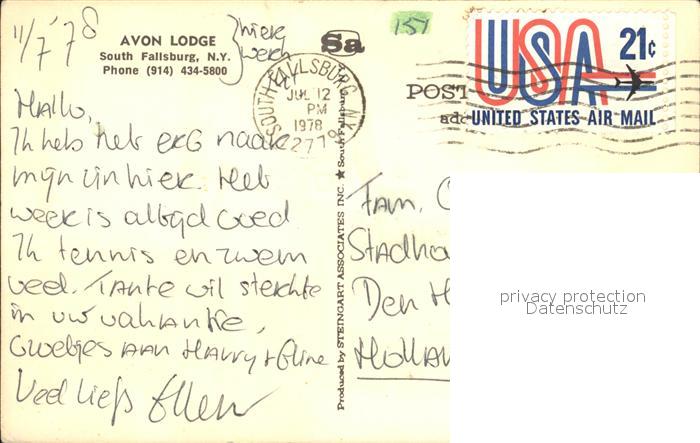 11/7 '78
AVON LODGE
South Fallsburg, N.Y.
Phone (914) 434-5800
hier
werk
Sa
151
USA 21¢
UNITED STATES AIR MAIL
SOUTH FALLSBURG, N.Y.
JUL 12
PM
1978
POST
add
Hallo,
Ik heb het erg naar
mijn zin hier. Het
weer is altijd goed
Ik tennis en zwem
veel. Tante wil sterkte
in uw vakantie,
Groetjes aan Harry + Eline
Veel liefs Ellen
Produced by STEINGART ASSOCIATES INC. ★ South Fallsburg
Fam.
Stadho
Den H
Hollan
privacy protection
Datenschutz